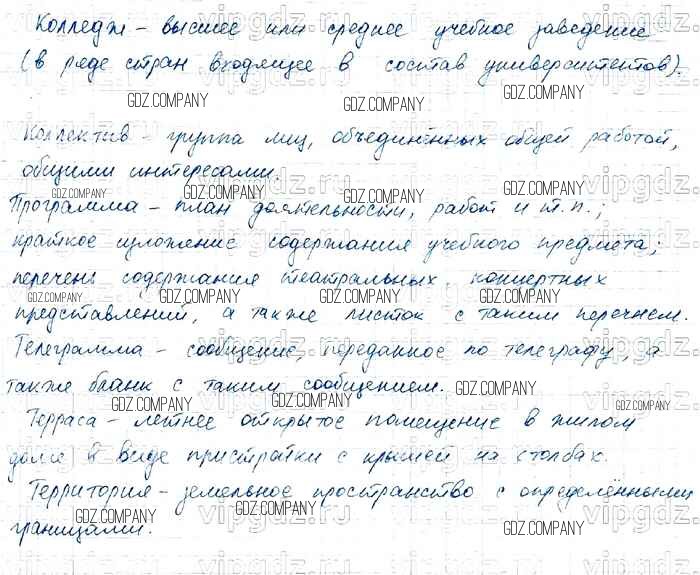 Колледж – высшее или среднее учебное заведение
(в ряде стран входящее в состав университетов).
GDZ.COMPANY GDZ.COMPANY GDZ.COMPANY
Коллектив – группа лиц, объединённых общей работой,
общими интересами.
GDZ.COMPANY GDZ.COMPANY GDZ.COMPANY GDZ.COMPANY
Программа – план деятельности, работ и т.п.;
краткое изложение содержания учебного предмета;
перечень содержания театральных, концертных
GDZ.COMPANY GDZ.COMPANY GDZ.COMPANY GDZ.COMPANY
представлений, а также листок с таким перечнем.
Телеграмма – сообщение, переданное по телеграфу, а
также бланк с таким сообщением.
GDZ.COMPANY GDZ.COMPANY GDZ.COMPANY GDZ.COMPANY
Терраса – летнее открытое помещение в жилом
доме в виде пристройки с крышей на столбах.
Территория – земельное пространство с определёнными
границами.
GDZ.COMPANY GDZ.COMPANY GDZ.COMPANY
vipgdz.ru